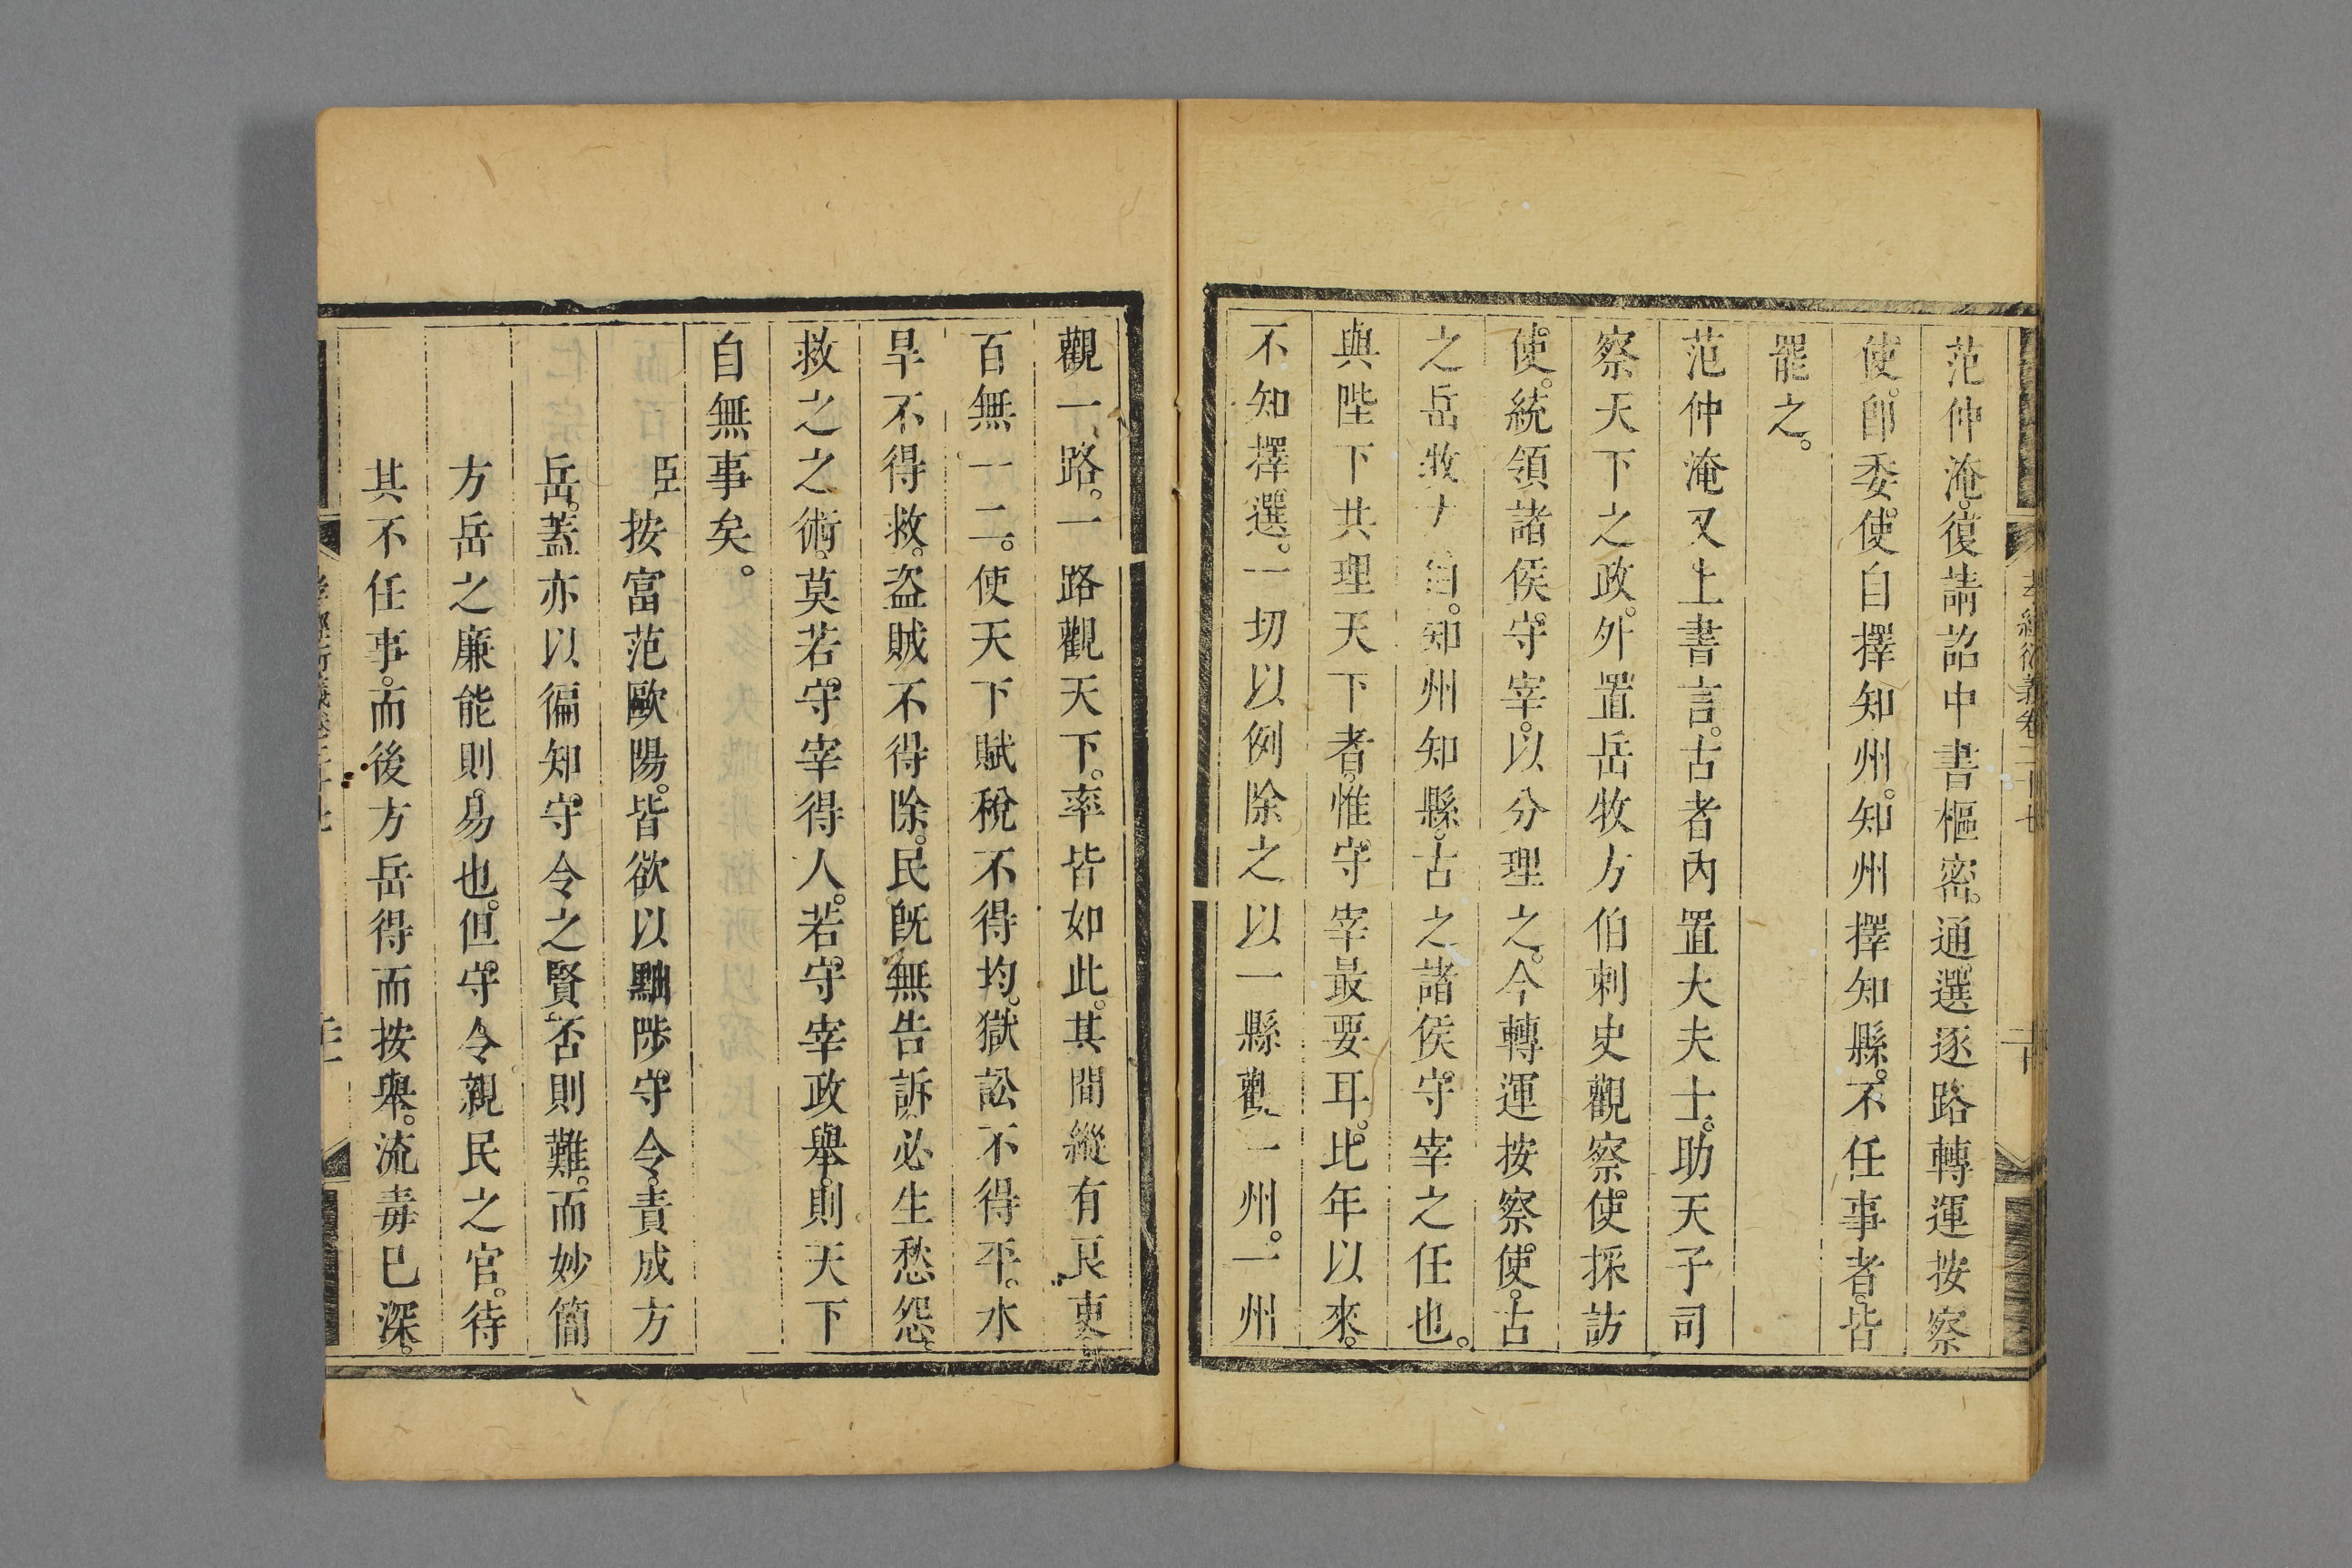 范仲淹。復請詔中書樞密。通選逐路轉運按察
使。卽委使自擇知州。知州擇知縣。不任事者。皆
罷之。
范仲淹又上書言。古者內置大夫士。助天子司
察天下之政。外置岳牧方伯刺史觀察使採訪
使。統領諸侯。守宰。以分理之。今轉運按察使。古
之岳牧方伯。知州知縣。古之諸侯。守宰之任也。
與陛下共理天下者。惟守宰最要耳。比年以來。
不知擇選。一切以例除之。以一縣觀一州。一州
觀一路。一路觀天下。率皆如此。其間縱有良吏。
百無一二。使天下賦稅不得均。獄訟不得平。水
旱不得救。盜賊不得除。民旣無告訴。必生愁怨。
救之之術。莫若守宰得人。若守宰政舉。則天下
自無事矣。
臣按富范歐陽。皆欲以黜陟守令。責成方
岳。蓋亦以徧知守令之賢否則難。而妙簡
方岳之廉能則易也。但守令親民之官。待
其不任事。而後方岳得而按舉。流毒已深。
孝經衍義卷二十七